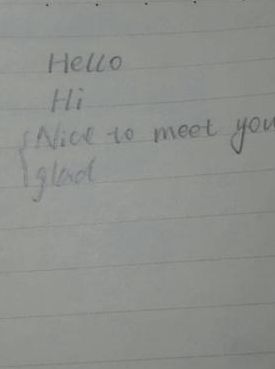 Hello
Hi
Nice to meet you
glad